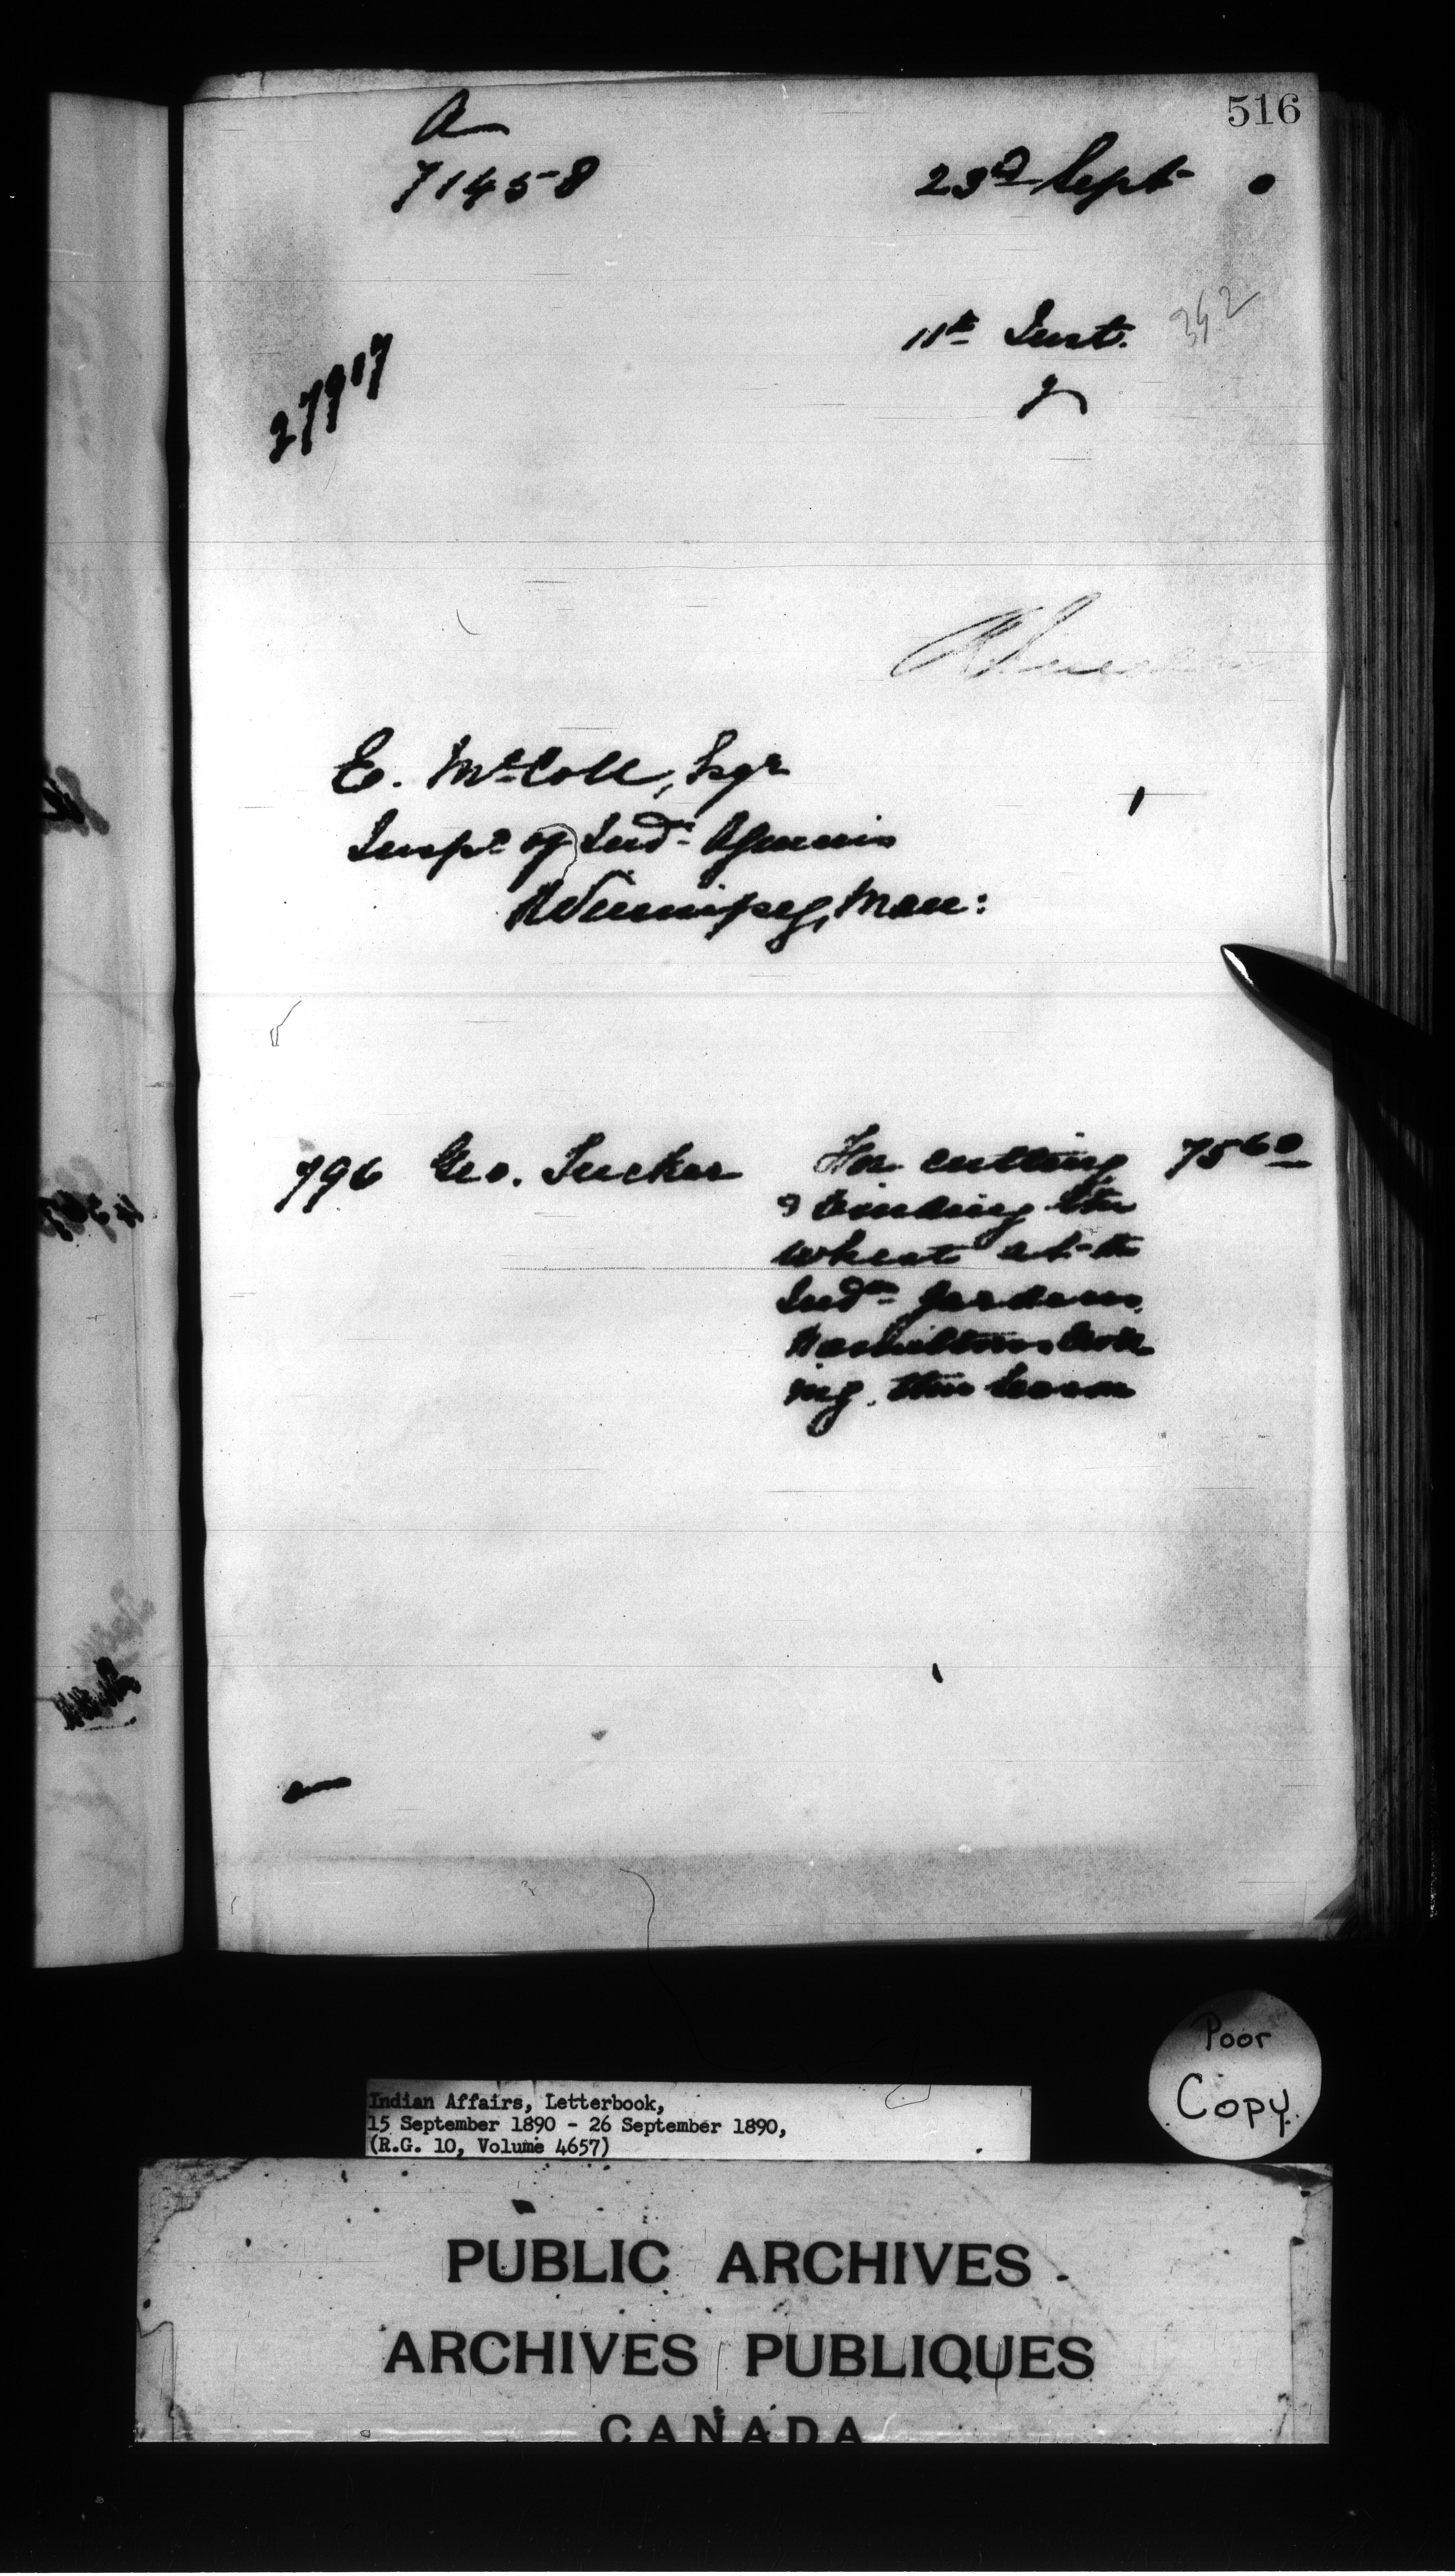 516
A
71458
23rd Sept
11th Inst.
342
27917
E. McColl, Esqr
Inspr of Indn Agencies
Winnipeg, Man:
796 Geo. Tucker For cutting 75 60
& binding the
wheat at the
Indn Gardens,
ing this season
Poor
Copy
Indian Affairs, Letterbook,
15 September 1890 - 26 September 1890,
(R.G. 10, Volume 4657)
PUBLIC ARCHIVES
ARCHIVES PUBLIQUES
CANADA